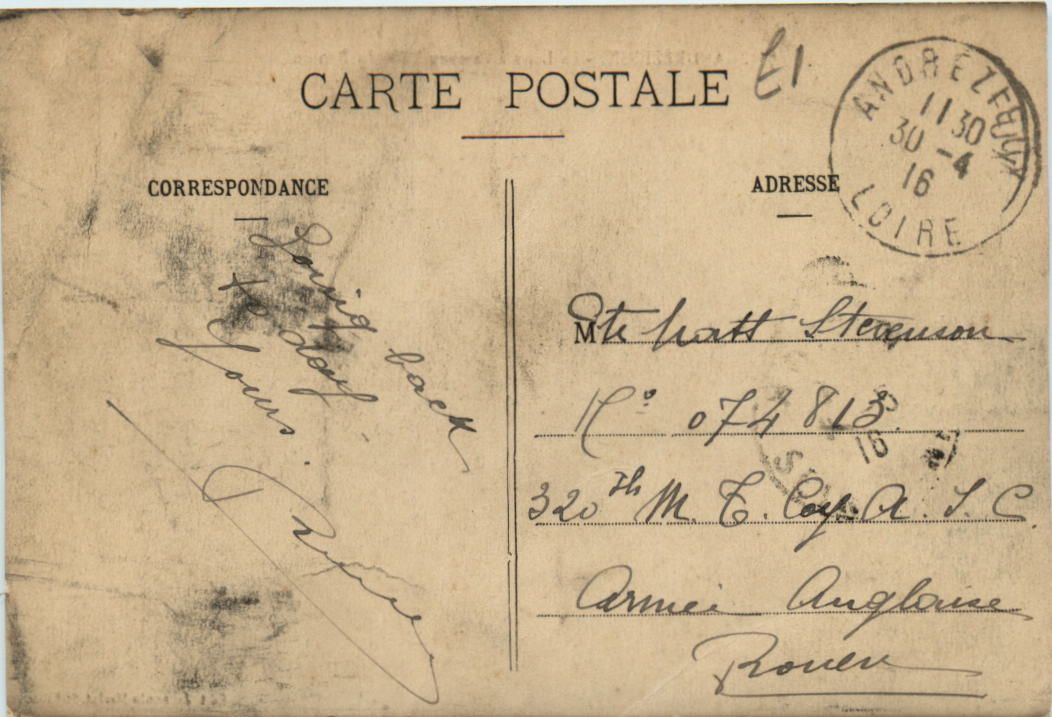 CARTE POSTALE
E1
ANDRÉZIEUX
11 30
30 -4
16
LOIRE
CORRESPONDANCE
ADRESSE
Going back
to day.
Yours.
Pte Matt Stevenson
M
No 074813.
16
320th M. T. Coy. A. S. C.
Armée Anglaise
Rouen